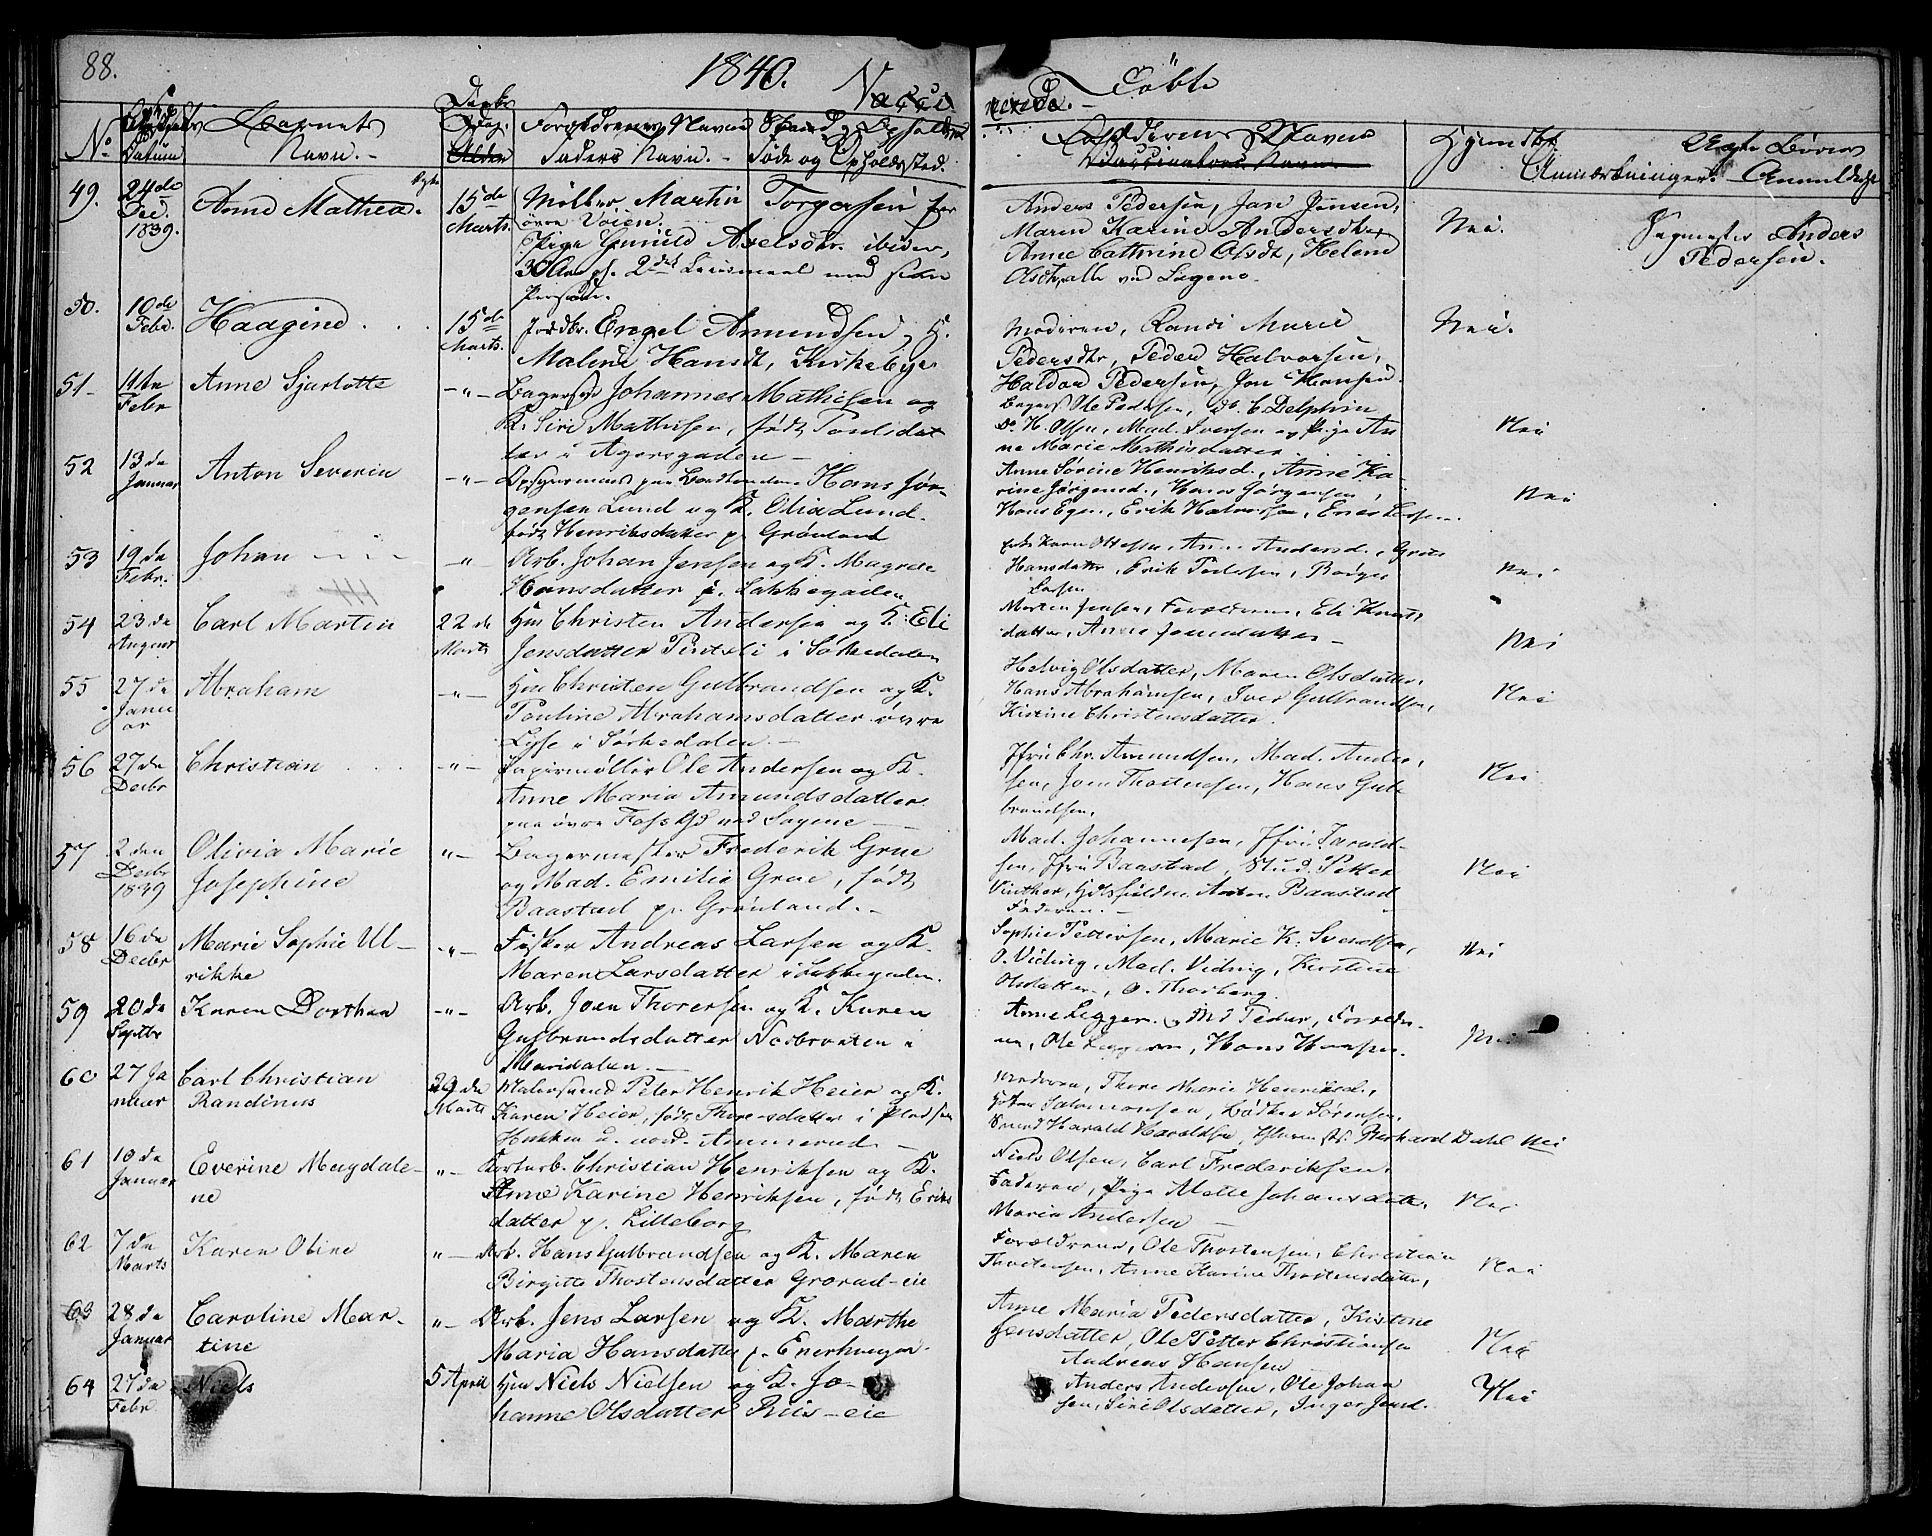 88.
1840.
Døbte
No
Datum
Barnets
Navn.
Daabs
Dag.
Forældrenes Navne Stand og Ophold
Faders Navn. - Føde og Opholdssted.
Faddernes Navne
Anmærkninger.
49. 24de Dec. 1839. Anne Mathea. 15de Marts. Møller Martin Torgersen
øvre Voien.
Pige Gunild Axelsdtr. ibidem,
Anders Pedersen, Jan Jensen,
Maren Karine Andersdtr
Anne Cathrine Olsdt, Helene
Olsdtr, alle ved Sagene.
Nei.
Anders
Pedersen.
50. 10de Febr. Haagine 15de Marts. Jordbr. Engel Amundsen, K.
Maline Hansdt, Kirkebye
Moderen, Randi Marie
Pedersdtr, Peder Halvorsen,
Haldor Pedersen, Jon Hansen.
Nei.
51- 11te Febr Anne Sjarlotte -"- Bagersvd Johannes Mathisen og
K. Siri Mathisen, født Poulsdat
ter i Agersgaden -
Bagers Ole Pedersen, Do. C. Delphin
Do H. Olsen, Mad. Iversen og Pige An
ne Marie Mathisdatter
Nei
52 13de Januar Anton Severin -"- Opsynsmand paa Hans Jør-
gensen Lund og K. Olia Lund.
født Henriksdatter p. Grønland
Anne Sørine Henriksd., Anne Ka-
rine Jørgensd., Hans Jørgensen,
Hans Egen, Erik Halvorsen,
Nei
53 19de Febr. Johan -"- Arb. Johan Jensen og K. Magrete
Hansdatter p. Lakkegaden
Karen Ottesen, Anne Andersd., Grete
Hansdatter, Erik Pedersen, Børge
Larsen
Nei
54 23de August Carl Martin 22de Marts Hm Christen Andersen og K. Eli
Jonsdatter Pintsli i Sørkedalen
Morten Jensen, Forældrene, Eli Knuts
datter, Anne Jonsdatter -
Nei
55 27de Januar Abraham -"- Hm Christen Gulbrandsen og K.
Pauline Abrahamsdatter øvre
Lyse i Sørkedalen -
Helvig Olsdatter, Maren Olsdatter,
Hans Abrahamsen, Iver Gulbrandsen,
Kistine Christensdatter.
Nei
56 27de Decbr Christian -"- Papirmøller Ole Andersen og K.
Anne Maria Amundsdatter
paa øvre Fos ved Sagene -
Jfru Chr. Amundsen, Mad. Ander,
sen, Jon Thostensen, Hans Gul
brandsen,
Nei
57 2den Decbr 1839 Olivia Marie
Josephine "- Bagermester Frederik Grue
og Mad. Emilie Grue, født
Baastad p. Grønland. -
Mad. Johannesen, Jfru Harald-
sen, Jfru Baastad, Stud. Petter
Vinther, Anton Baastad
Faderen. -
Nei
58 16de Decbr Marie Sophie Ul-
rikke -"- Fisker Andreas Larsen og K.
Maren Larsdatter i Lakkegaden.
Sophie Pettersen, Marie K. Svendsen,
O. Viding, Mad. Viding, Kirstine
Olsdatter, O. Thorberg.
Nei
59 20de Septbr Karen Dorthea -"- Arb. Joen Thorersen og K. Karen
Gulbrandsdatter Nosbraaten i
Maridalen. -
Anne Leggeren, Foreldre-
ne, Ole Leggeren, Hans Hansen.
Nei
60 27 Ja
nuar Carl Christian
Randinus 29de Marts Malersvend Peter Henrik Heier og K.
Karen Heier, født Thoresdatter i Pladsen
Hakken u. nord. Ammerud -
Moderen, Thore Marie Henriksd.,
Salomonsen, Bødker Sørensen,
Svend Harald Haraldsen, Berhard Dahl Nei
61 10de Januar Everine Magdale-
ne "- Christian Henriksen og K.
Anne Karine Henriksen, født Eriks
datter p. Lilleborg
Niels Olsen, Carl Frederiksen,
Faderen, Pige Mette Johansdatter,
Maria Andersen -
Nei
62 7de Marts Karen Oline "- Arb. Hans Gulbrandsen og K. Maren
Birgitte Thostensdatter Grorud-eie
Forældrene, Ole Thostensen, Christian
Thostensen, Anne Karine Thostensdatter,
Nei
63 28de Januar Caroline Mar-
tine "- Arb. Jens Larsen og K. Marthe
Maria Hansdatter p. Enerhaugen.
Anne Maria Pedersdatter, Kistine
Jensdatter, Ole Petter Christiansen
Andreas Hansen
Nei
64 27de Febr. Niels 5 April Hm Niels Nielsen og K. Jo-
hanne Olsdatter Riis-eie
Anders Andersen, Ole Johan
sen, Siri Olsdatter, Inger Jensd.
Nei